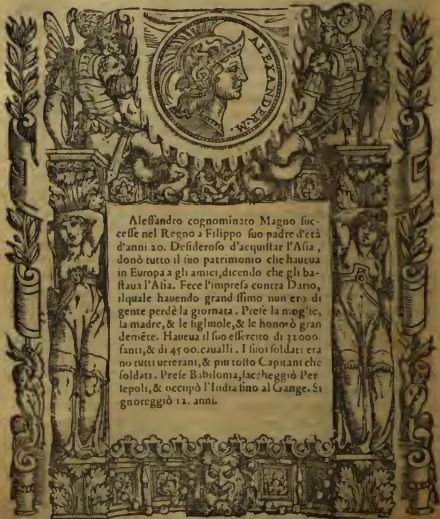 ALEXANDER.M.
Alessandro cognominato Magno suc-
cesse nel Regno a Filippo suo padre d'età
d'anni 20. Desideroso d'acquistar l'Asia,
donò tutto il suo patrimonio che haueua
in Europa a gli amici, dicendo che gli ba-
staua l'Asia. Fece l'impresa contra Dario,
ilquale hauendo grandissimo numero di
gente perdè la giornata. Prese la moglie,
la madre, & le figliuole, & le honorò gran
demẽte. Haueua il suo essercito di 32000.
fanti, & di 4500. caualli. I suoi soldati era
no tutti ueterani, & piu tosto Capitani che
soldati. Prese Babilonia, saccheggiò Per
sepoli, & occupò l'India fino al Gange. Si
gnoreggiò 12. anni.